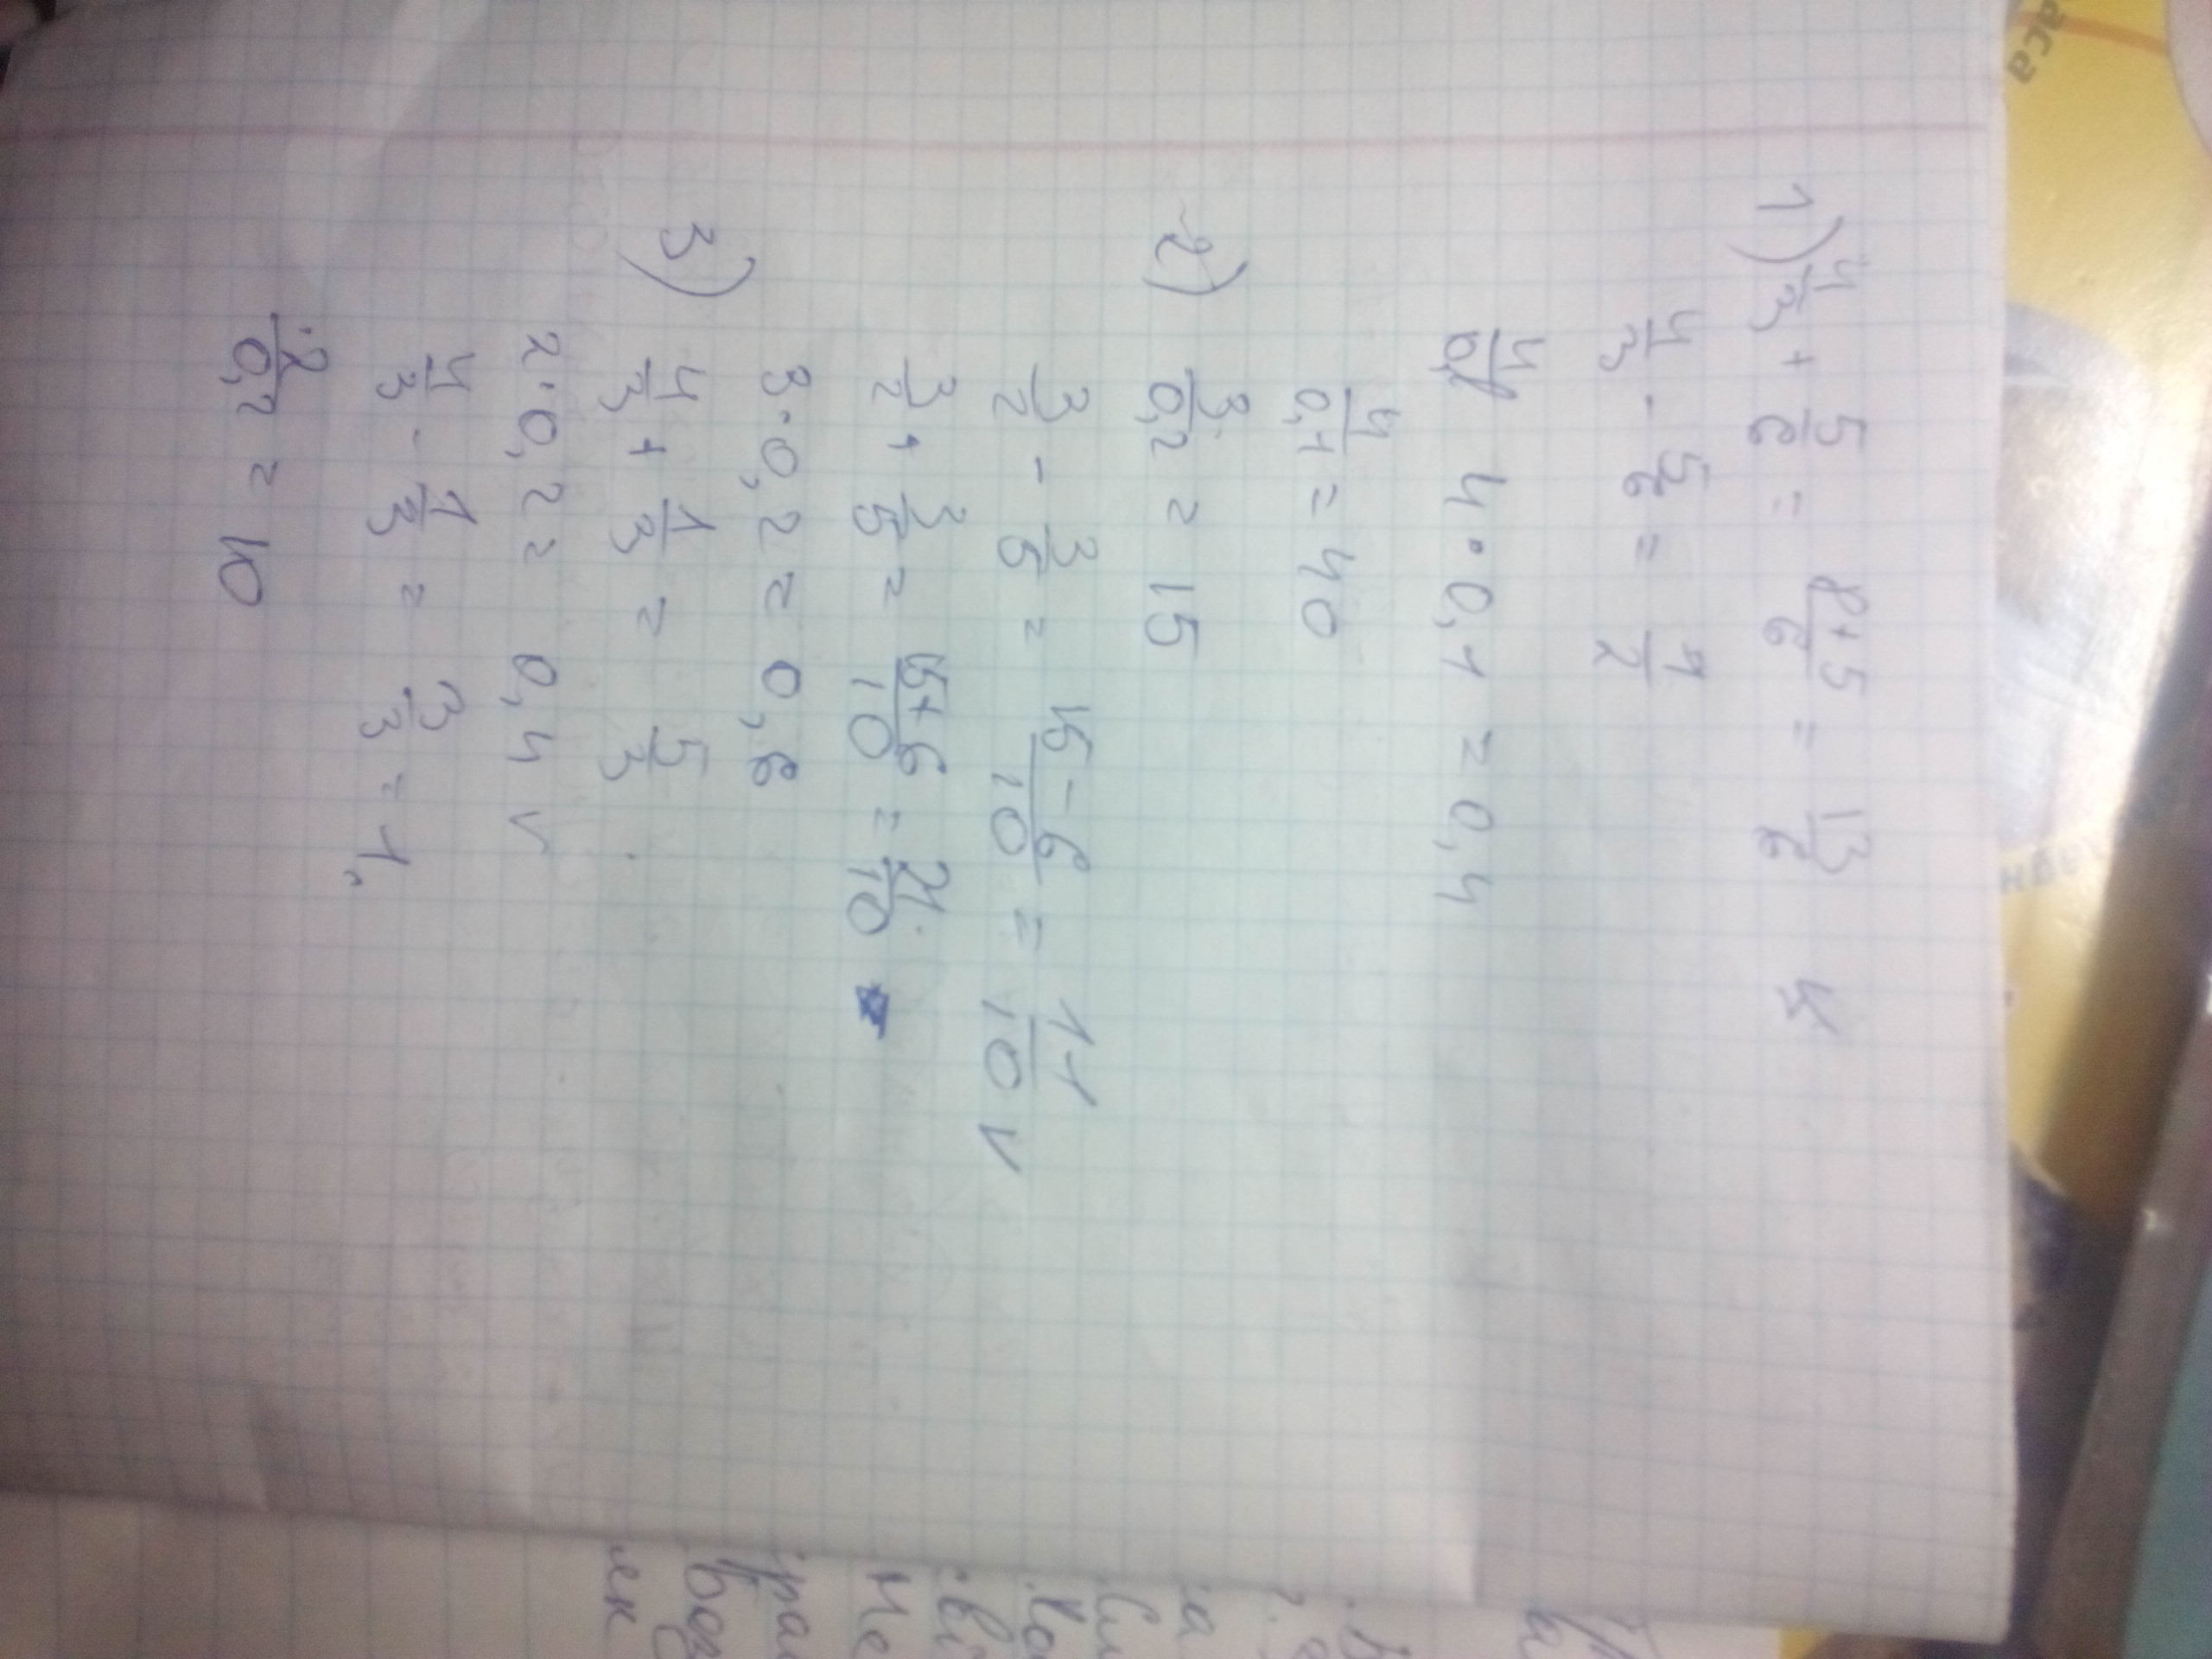 1) 4/3 + 5/6 = 8+5/6 = 13/6
4/3 - 5/6 = 1/2
4 · 0,1 = 0,4
4/0,1 = 40
2) 3/0,2 = 15
3/2 - 3/5 = 15-6/10 = 11/10 v
3/2 + 3/5 = 15+6/10 = 21/10
3·0,2 = 0,6
3) 4/3 + 1/3 = 5/3
2·0,2 = 0,4 v
4/3 - 1/3 = 3/3 = 1
2/0,2 = 10